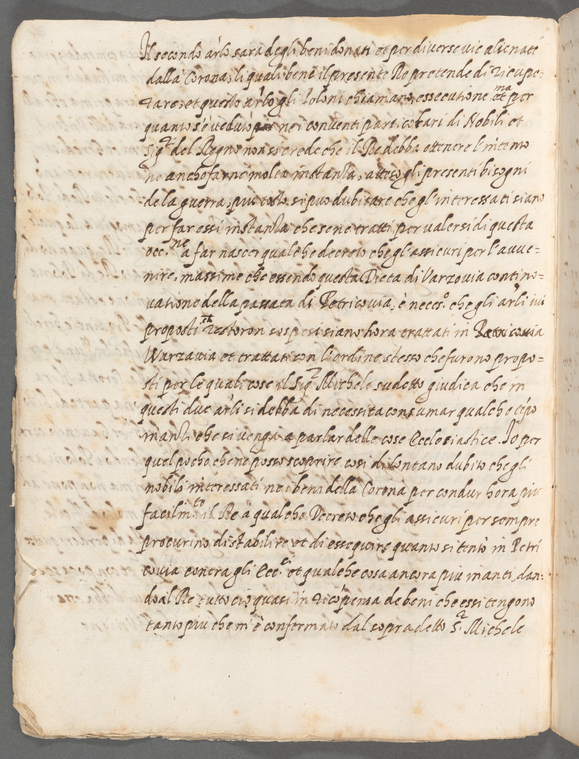 Il secondo arlo sarà degli beni donati et per diverse vie alienate
dalla Corona, li quali beni il presente Re pretende di ricupe-
rare: et questo arlo gli Poloni chiamano essecutione et per
quanto s'è veduto nei conventi particolari di Nobili et
Sig.ri del Regno non si crede che il Re debba ottener l'intento
ne anche farne molta instanza, attesi gli presenti bisogni
de la guerra, più tosto si può dubitare che gl'interessati siano
per far essi instanza che se ne tratti per valersi di questa
occ.ne a far nascer qualche decreto che gl'assicuri per l'avve-
nire, massime che essendo questa Dieta di Varzovia contino-
vatione della passata di Petricovia, è necess.o che gli arli ivi
proposti restoron sospesi siano hora trattati in
Warzavia et trattati con l'ordine stesso che furono propo-
sti per le quali cose il Sig.r Michele sudetto giudica che in
questi due arli si debba di necessità consumar qualche tempo
inanti che si venga a parlar delle cose Ecclesiastice. Io per
quel pocho che ne posso scoprire così di lontano dubito che gli
nobili interessati ne i beni della Corona per condur hora più
facilm.te il Re a qualche Decreto che gli assicuri per sempre
procurino di stabilire et di essequire quanto si tentò in Petri
covia contra gli Ecc.ci et qualche cosa ancora più inanti, dan-
do al Re tutto ciò quasi in ricompensa de beni che essi tengono
tanto più che m'è confermato dal sopradetto S.r Michele